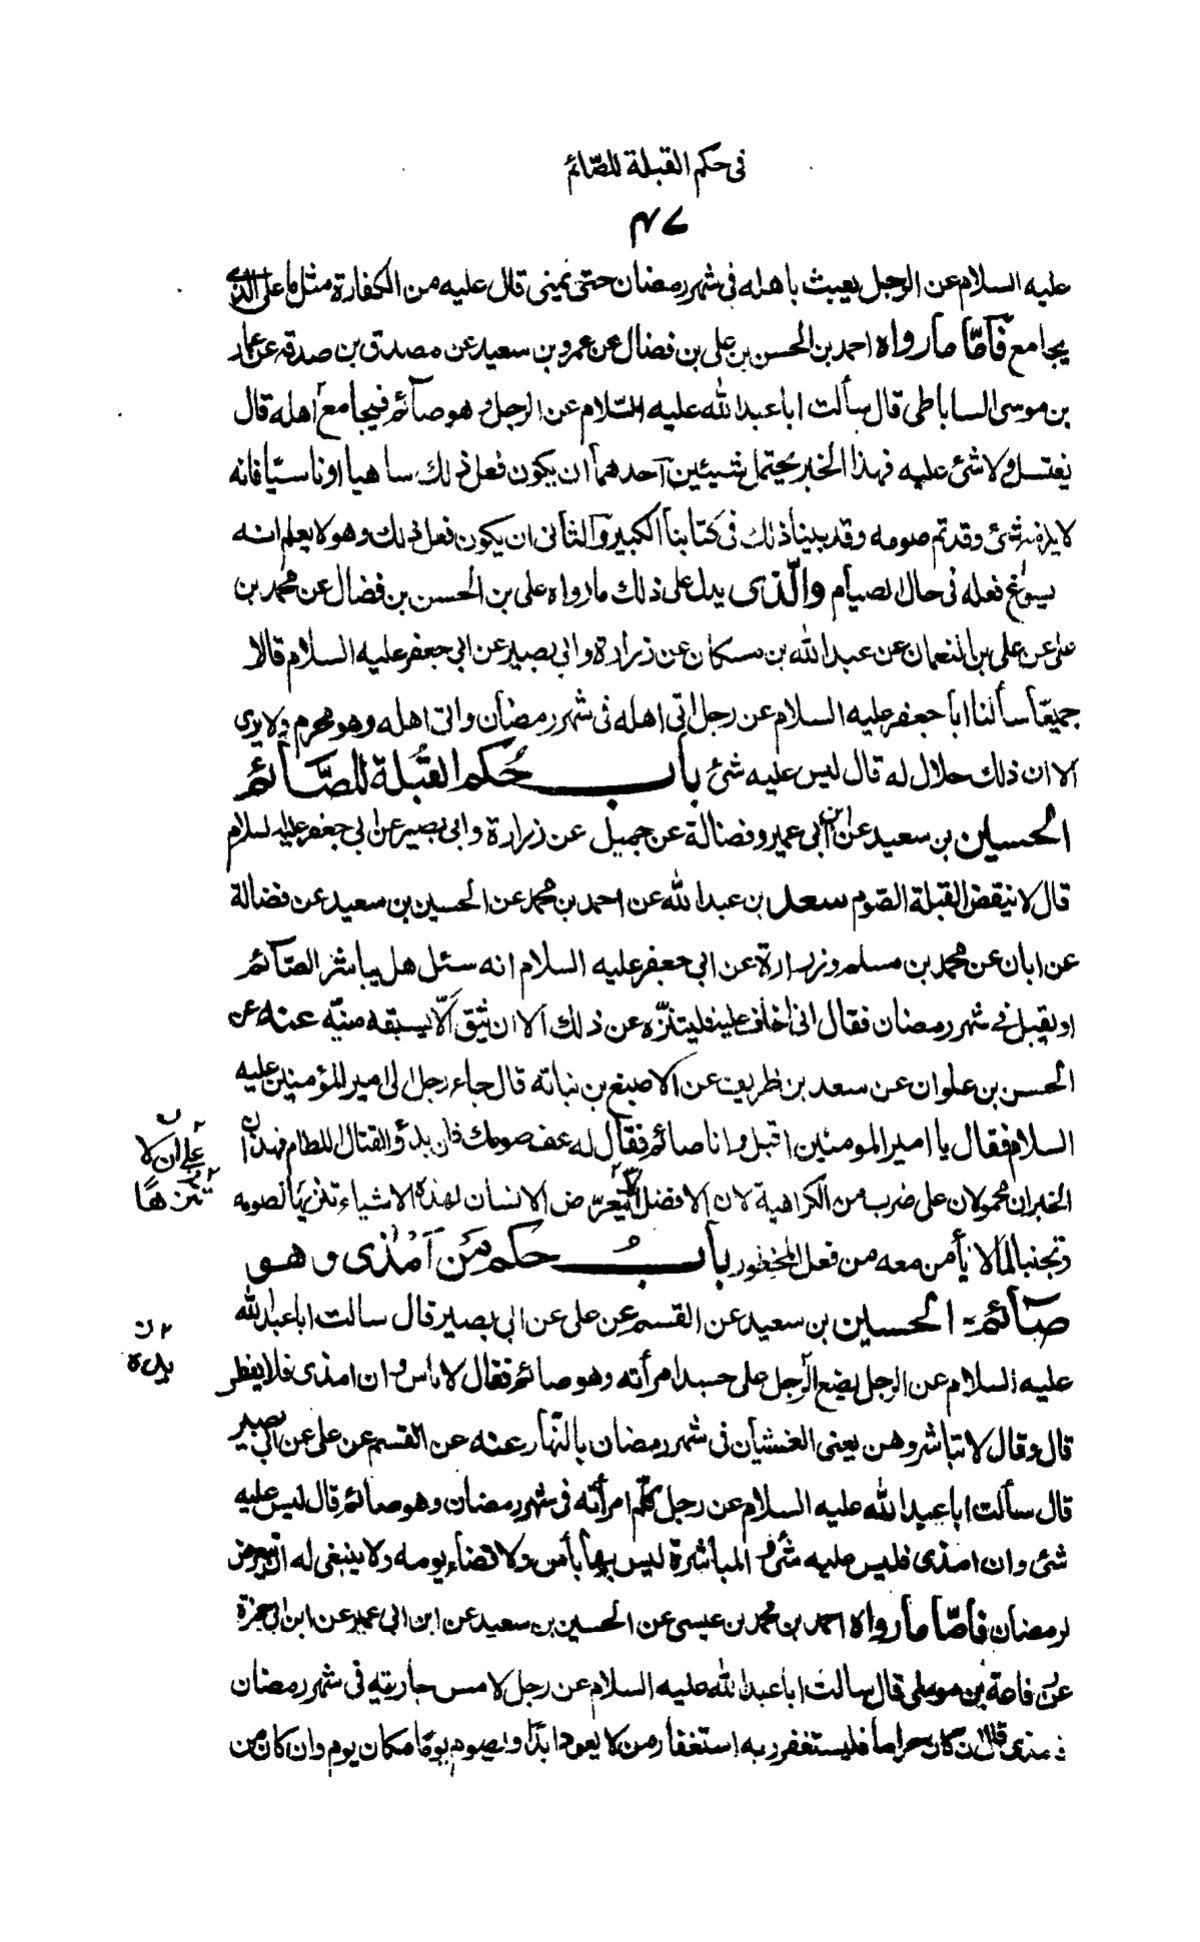 في حكم القبلة للصّائم
٤٧
عليه السلام عن الرجل يعبث باهله فى شهر رمضان حتى يمنى قال عليه من الكفارة مثل ما على الذى
يجامع فَأمّا ما رواه احمد بن الحسن بن على بن فضال عن عمرو بن سعيد عن مصدق بن صدقة عن عمار
بن موسى الساباطى قال سألت ابا عبد الله عليه السّلام عن الرجل وهو صآئم فيجامع اهله قال
يغتسل ولا شئ عليه فهذا الخبر يحتمل شيئين آحدهما ان يكون فعل ذلك ساهيا او ناسيًا فانه
لا يلزمه شئ وقد تم صومه وقد بينا ذلك فى كتابنا الكبير وَالثانى ان يكون فعل ذلك وهو لا يعلم انه
يسوغ فعله فى حال الصيام والّذى يدل على ذلك ما رواه على بن الحسن بن فضال عن محمد بن
على عن على بن النعمان عن عبد الله بن مسكان عن زرارة وابى بصير عن ابى جعفر عليه السلام قالا
جميعًا سألنا ابا جعفر عليه السلام عن رجل اتى اهله فى شهر رمضان واتى اهله وهو محرم ولا يرى
الا ان ذلك حلال له قال ليس عليه شئ باب حُكم القُبلة للصَّآئم
الحسين بن سعيد عن ابن ابى عمير وفضالة عن جميل عن زرارة وابى بصير عن ابى جعفر عليه السلام
قال لا ينقض القبلة الصّوم سعد بن عبد الله عن احمد بن محمد عن الحسين بن سعيد عن فضالة
عن ابان عن محمد بن مسلم وزرارة عن ابى جعفر عليه السلام انه سئل هل يباشر الصّآئم
او يقبل فى شهر رمضان فقال انى اخاف عليه فليتنزّه عن ذلك الا ان يثق الّا يسبقه منيّه عنه عن
الحسن بن علوان عن سعد بن ظريف عن الاصبغ بن نباته قال جاء رجل الى امير المؤمنين عليه
السلام فقال يا امير المومنين اقبل وانا صائم فقال له عف صومك فان بدؤ القتال اللطام فهذان
على ان لا
الخبران محمولان على ضرب من الكراهية لان الافضل الّا يتعرّض الانسان لهذه الاشياء تنزيها لصومه
تنزها
وتجنبا لما لا يأمن معه من فعل المحظور بابُ حكم مَن آمْذى وهو
صآئم الحسين بن سعيد عن القسم عن على عن ابى بصير قال سالت ابا عبد الله
عليه السلام عن الرجل يضع الرجل على جسد امرأته وهو صائم فقال لا باس وان امذى فلا يفطر
يده
قال وقال لا تباشروهن يعنى الغشيان فى شهر رمضان بالنّهار عنه عن القسم عن على عن ابى بصير
قال سألت ابا عبد الله عليه السلام عن رجل كلّم امرأته فى شهر رمضان وهو صائم قال ليس عليه
شئ وان امذى فليس عليه شئ والمباشرة ليس بها بأس ولا قضاء يومه ولا ينبغى له ان يتعرض
لرمضان فامّا ما رواه احمد بن محمد بن عيسى عن الحسين بن سعيد عن ابن ابى عمير عن ابن ابى حمزة
عن رفاعة بن موسى قال سالت ابا عبد الله عليه السلام عن رجل لامس جاريته فى شهر رمضان
فامذى قال ان كان حراما فليستغفر ربه استغفار من لا يعود ابدًا ويصوم يومًا مكان يوم وان كان من